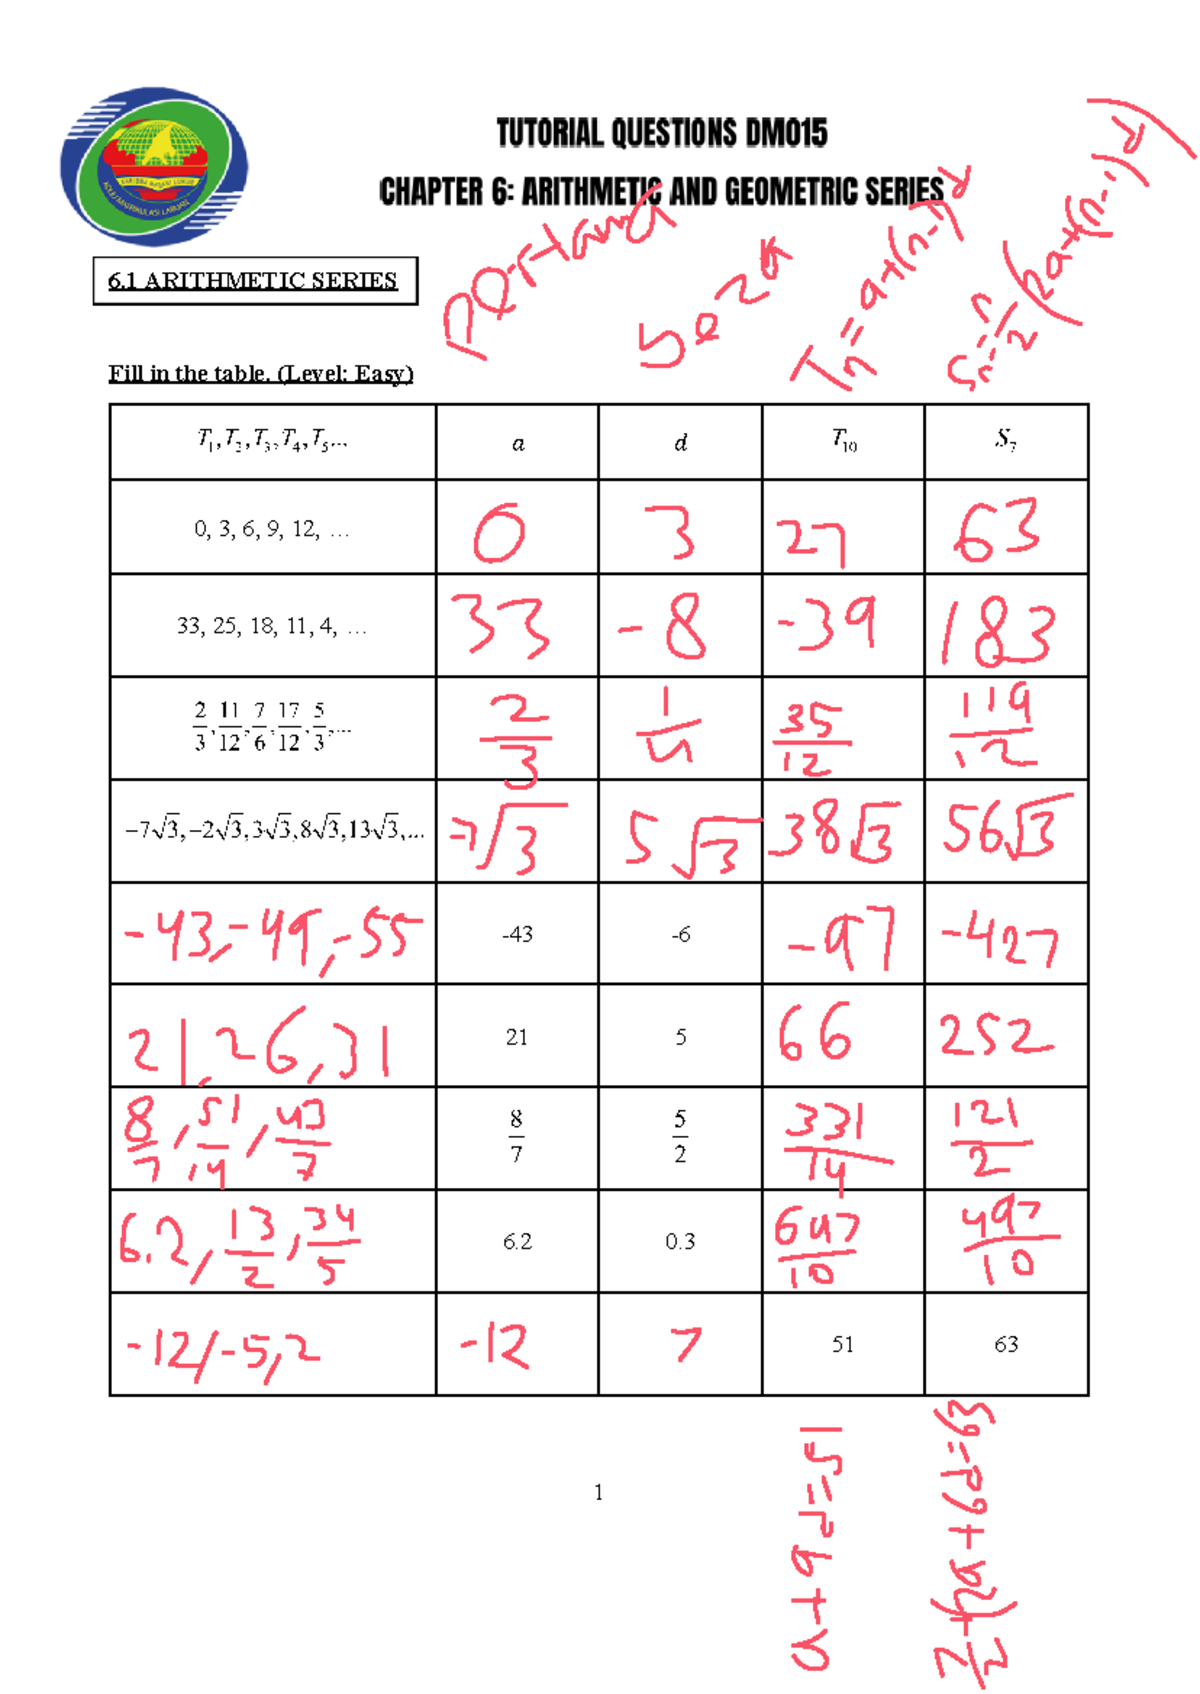 TUTORIAL QUESTIONS DM015
CHAPTER 6: ARITHMETIC AND GEOMETRIC SERIES
6.1 ARITHMETIC SERIES
Pertama
beza
Tn = a+(n-1)d
Sn = n/2 (2a+(n-1)d)
Fill in the table. (Level: Easy)
T₁, T₂, T₃, T₄, T₅... a d T₁₀ S₇
0, 3, 6, 9, 12, … 0 3 27 63
33, 25, 18, 11, 4, … 33 -8 -39 183
2/3, 11/12, 7/6, 17/12, 5/3,... 2/3 1/4 35/12 119/12
−7√3, −2√3, 3√3, 8√3, 13√3,... -7√3 5√3 38√3 56√3
-43, -49, -55 -43 -6 -97 -427
21, 26, 31 21 5 66 252
8/7, 51/14, 43/7 8/7 5/2 331/14 121/2
6.2, 13/2, 34/5 6.2 0.3 647/10 497/10
-12, -5, 2 -12 7 51 63
a + 9d = 51
7/2 (2a + 6d = 63
1